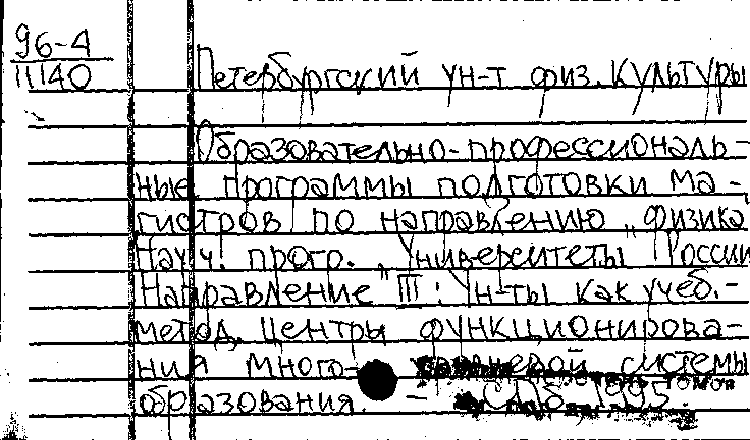 96-4
11140
Петербургский ун-т физ. культуры
Образовательно-профессиональ-
ные программы подготовки ма-
гистров по направлению „физика
Науч. прогр. „Университеты России
Направление III: Ун-ты как учеб.-
метод. центры функционирова-
ния много- уровневой системы
образования. - СПб 1995.